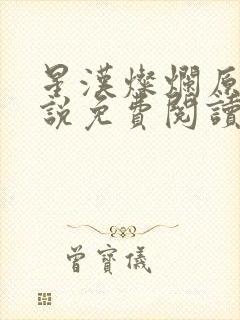 星漢燦爛原
說免費閱讀
曾寶儀